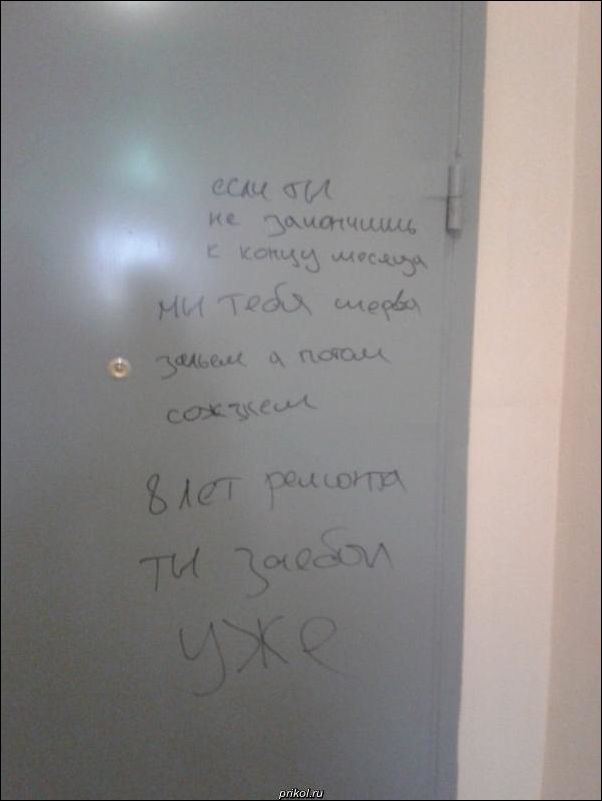 если ти
не закончишь
к концу месяца
ми тебя шерва
зальем а потом
сожжем
8 лет ремонта
ти заебал
уже
prikol.ru